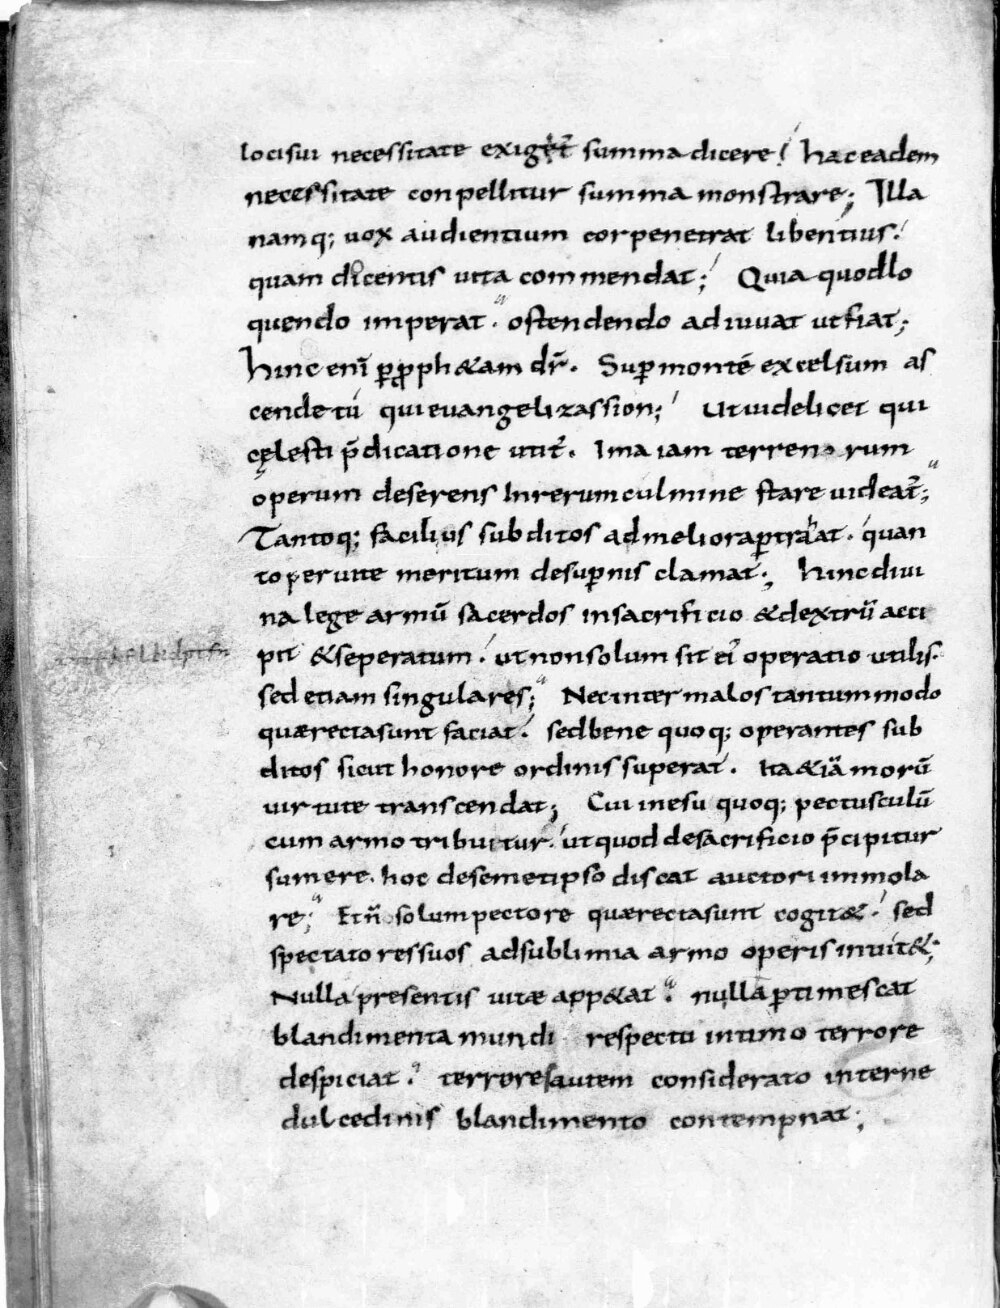 loci sui necessitate exiget̄ summa dicere! hac eadem
necessitate conpellitur summa monstrare; Illa
namq; vox audientium cor penetrat libentius.
quam dicentis vita commendat; Quia quod lo
quendo imperat. ostendendo adiuvat ut fiat;
hinc enī p̱ p̱ph&am dr̄. Sup̱ montē excelsum as
cende tū qui euangelizas sion; Ut uidelicet qui
cęlesti p̄dicatione utit̄. Ima iam terrenorum
operum deserens In rerum culmine stare uideat̄;
Tantoq; facilius subditos ad meliora p̱trahat. quan
to per vite meritum desup̱nis clamat; hinc diui
na lege armū sacerdos in sacrificio & dextrū acci
pit & seperatum. ut non solum sit ei operatio utilis.
sed etiam singulares; Nec inter malos tantummodo
quærecta sunt faciat. sed bene quoq; operantes sub
ditos sicut honore ordinis superat. Ita &iā morū
uirtute transcendat; Cui in esu quoq; pectusculū
cum armo tribuitur. ut quod de sacrificio p̄cipitur
sumere. hoc desemetipso discat auctori immola
re; Et n̄ solum pectore quærecta sunt cogit&. sed
spectatores suos ad sublimia armo operis inuit&;
Nulla presentis uitæ app&at. nulla p̱timescat
blandimenta mundi respectu intimo terrore
despiciat. terrores autem considerato interne
dulcedinis blandimento contempnat;